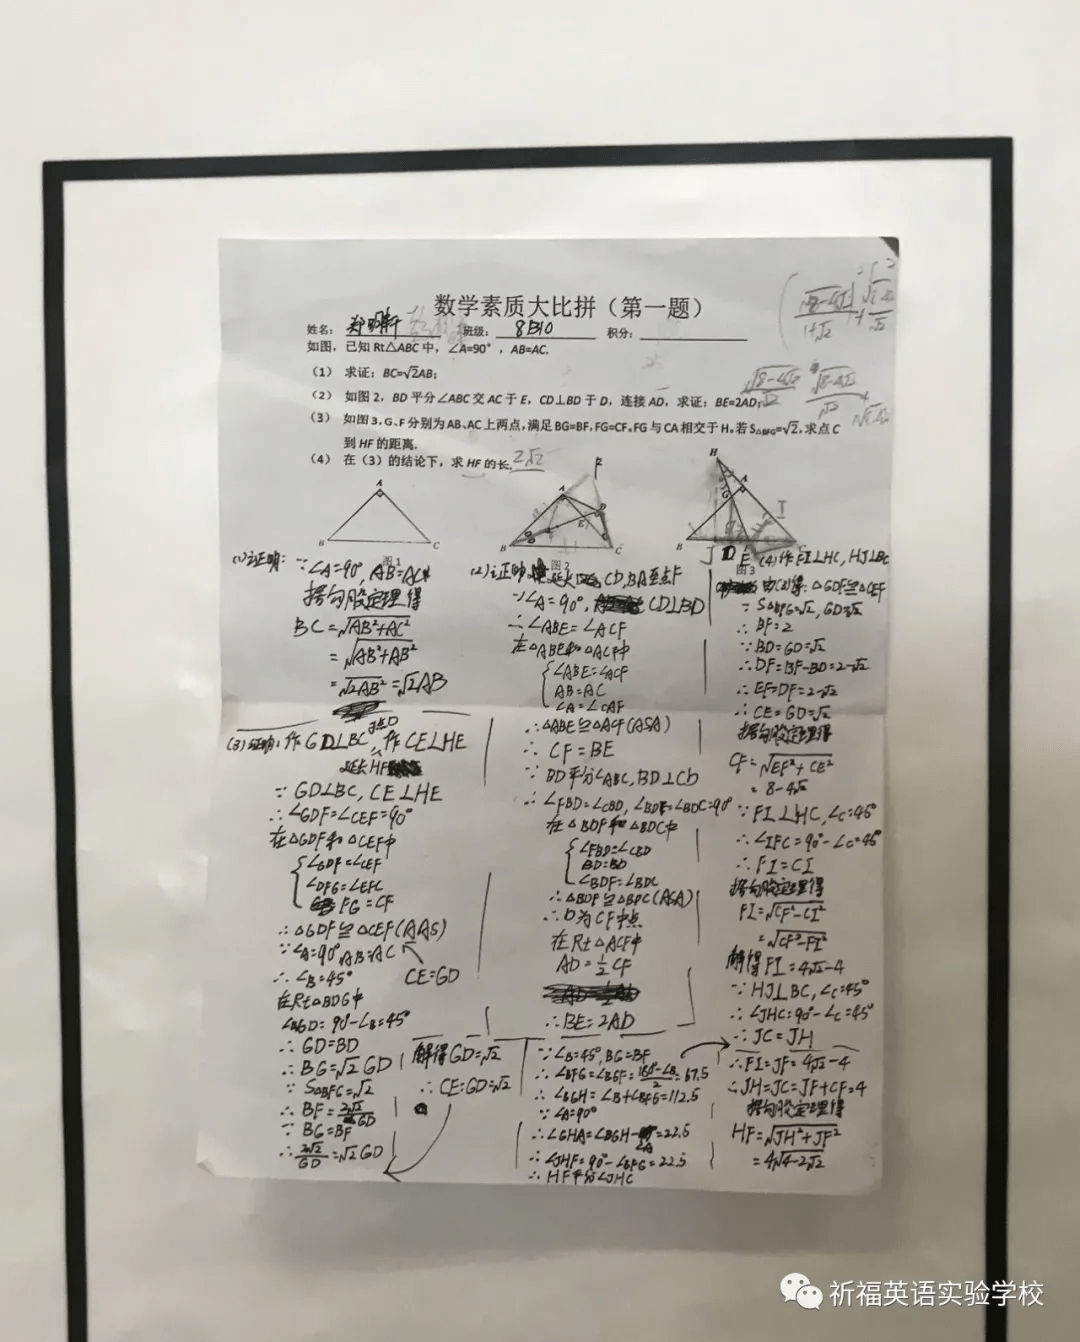 数学素质大比拼（第一题）
姓名：
班级： 8B10 积分：
如图，已知 Rt△ABC 中，∠A=90°，AB=AC.
（1） 求证：BC=√2AB;
（2） 如图 2，BD 平分∠ABC 交 AC 于 E，CD⊥BD 于 D，连接 AD，求证：BE=2AD;
（3） 如图 3，G、F 分别为 AB、AC 上两点，满足 BG=BF，FG=CF，FG 与 CA 相交于 H。若 S△BFG=√2，求点 C
到 HF 的距离.
（4） 在（3）的结论下，求 HF 的长. 2√2
A
B
C
图1
A
B
C
D
E
图2
H
A
G
B
I
J
D
E
图3
(1)证明: ∵∠A=90°, AB=AC
据勾股定理得
BC=√AB²+AC²
=√AB²+AB²
=√2AB²=√2AB
(2)证明 延长 CD,BA至点F
∵∠A=90°, CD⊥BD
∴∠ABE=∠ACF
在△ABE和△ACF中
∠ABE=∠ACF
AB=AC
∠A=∠CAF
∴△ABE≌△ACF(ASA)
∴ CF=BE
∵ BD平分∠ABC, BD⊥CD
∴∠FBD=∠CBD, ∠BDF=∠BDC=90°
在△BDF和△BDC中
∠FBD=∠CBD
BD=BD
∠BDF=∠BDC
∴△BDF≌△BDC(ASA)
∴D为CF中点
在Rt△ACF中
AD=½CF
∴BE=2AD
(3)证明:作GD⊥BC于点D,作CE⊥HE
延长HF
∵ GD⊥BC, CE⊥HE
∴∠GDF=∠CEF=90°
在△GDF和△CEF中
∠GDF=∠CEF
∠DFG=∠EFC
FG=CF
∴△GDF≌△CEF(AAS)
CE=GD
∵∠A=90° AB=AC
∴∠B=45°
在Rt△BDG中
∠BGD=90°-∠B=45°
∴ GD=BD
∴ BG=√2GD
∵ S△BFG=√2
∴ BF=2√2/GD
∵ BG=BF
∴ 2√2/GD=√2GD
解得GD=√2
∴ CE=GD=√2
(4)作FI⊥HC, HJ⊥BC
由(3)得:△GDF≌△CEF
∵ S△BFG=√2, GD=√2
∴ BF=2
∵ BD=GD=√2
∴DF=BF-BD=2-√2
∴ EF=DF=2-√2
∴ CE=GD=√2
据勾股定理得
CF=√EF²+CE²
=8-4√2
∵FI⊥HC, ∠C=45°
∴∠IFC=90°-∠C=45°
∴FI=CI
据勾股定理得
FI=√CF²-CI²
=√CF²-FI²
解得FI=4√2-4
∵HJ⊥BC, ∠C=45°
∴∠JHC=90°-∠C=45°
∴JC=JH
∵∠B=45°, BG=BF
∴∠BFG=∠BGF=180°-∠B/2=67.5
∴∠BGH=∠B+∠BFG=112.5
∵∠A=90°
∴∠GHA=∠BGH-∠A=22.5
∴∠JHF=90°-∠BFG=22.5
∴HF平分∠JHC
∴FI=JF=4√2-4
∴JH=JC=JF+CF=4
据勾股定理得
HF=√JH²+JF²
=4√4-2√2
祈福英语实验学校